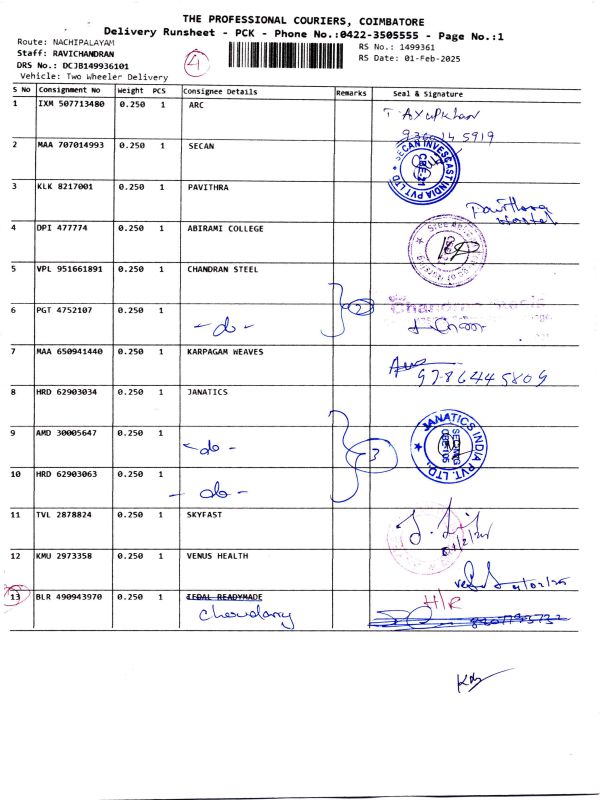 THE PROFESSIONAL COURIERS, COIMBATORE
Delivery Runsheet - PCK - Phone No.:0422-3505555 - Page No.:1
Route: NACHIPALAYAM
Staff: RAVICHANDRAN
DRS No.: DCJB149936101
Vehicle: Two Wheeler Delivery
4
RS No.: 1499361
RS Date: 01-Feb-2025
S No Consignment No Weight PCS Consignee Details Remarks Seal & Signature
1 IXM 507713480 0.250 1 ARC
2 MAA 707014993 0.250 1 SECAN
SECAN INVESCAST INDIA PVT LTD
3 KLK 8217001 0.250 1 PAVITHRA
Hostel
4 DPI 477774 0.250 1 ABIRAMI COLLEGE
5 VPL 951661891 0.250 1 CHANDRAN STEEL
6 PGT 4752107 0.250 1 - do - 2
7 MAA 650941440 0.250 1 KARPAGAM WEAVES
9786445809
8 HRD 62903034 0.250 1 JANATICS
JANATICS INDIA PVT. LTD.
9 AMD 30005647 0.250 1 - do - 3
10 HRD 62903063 0.250 1 - do -
11 TVL 2878824 0.250 1 SKYFAST
12 KMU 2973358 0.250 1 VENUS HEALTH
13 BLR 490943970 0.250 1 IEDAL READYMADE H/R
Choudarry